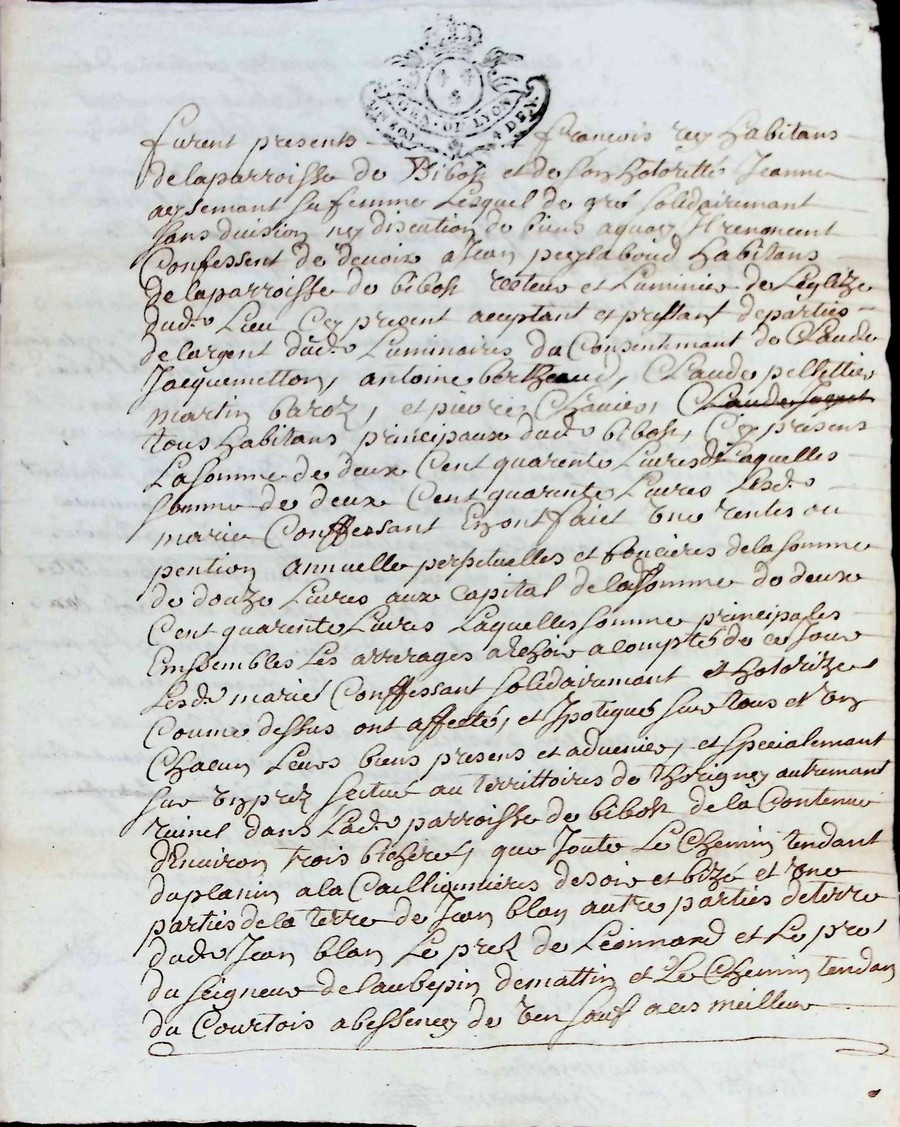 GEN. DE LYON 4 DEN.
furent presents francois rey habitans
de la parroisse de Bibost et de son hotoretté Jeanne
sa femme Lesquel de gré solidairemant
sans division ny discution de biens aquoy Il renoncent
Confessent de devoir a Jean peylaboud habitans
de la parroisse de bibost recteur et Luminier de Leglize
dud. Lieu Cy present aceptant et prestant de parties
de largent dud. Luminaires du Consentmant de Claude
Jacquemetton, antoine bertheaud, Claude pellettier
martin baroz, et pierre Chavier, Claude Jaquet
tous habitans principaux dud. bibost, Cy presens
La somme de deux Cent quarente Livres de Laquelles
somme de deux Cent quarente Livres Lesd.
marié Conffessant En ont faict une rentes ou
pention annuelle perpetuelles et foncieres de la somme
de douze Livres aux capital de la somme de deux
Cent quarente Livres Laquelles somme principales
Enssembles Les arrerages a Echoir a compté de ce Jour
Lesd. marié Conffessant solidairemant et hotorizé
Coume dessus ont affecté, et Ipotiqué sur tous et un
Chacun Leurs biens presens et advenir, et specialemant
sur un prez scitué au territtoires de thorigney autremant
ruinel dans Lad. parroisse de bibost de la Contenue
dEnviron trois bicheré, que Joute Le Chemin tendant
du planin a la Caillionnieres de soir et bizé et une
parties de la terre de Jean blan autre parties de terre
dud. Jean blan Le prez de Leonnard et Le pré
du seigneur de laubepin de mattin et Le Chemin tendan
du Courtois a bessenay de ven sauf a ces meilleur